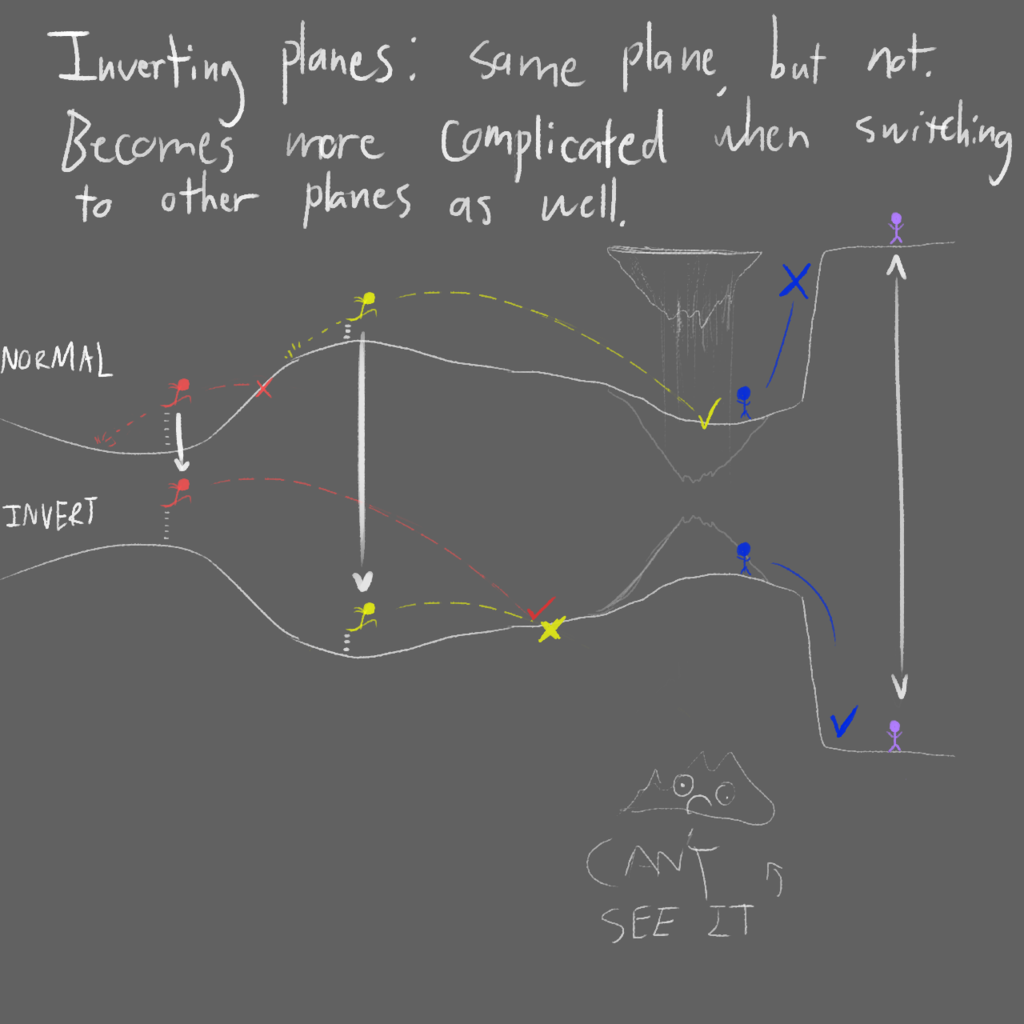 Inverting planes: same plane, but not.
Becomes more complicated when switching
to other planes as well.
NORMAL
INVERT
CAN'T
SEE IT